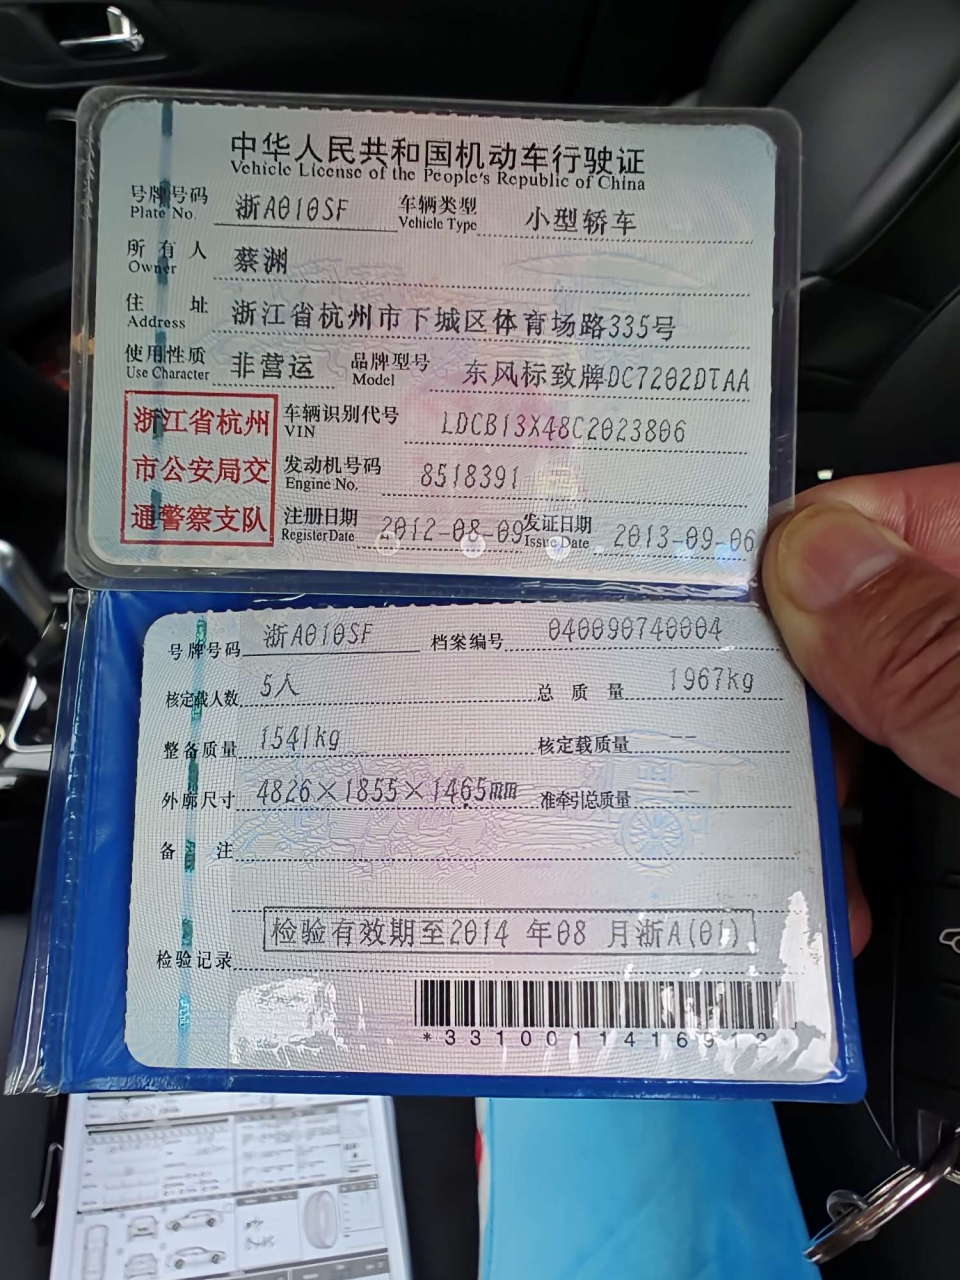 中华人民共和国机动车行驶证
Vehicle License of the People's Republic of China
号牌号码 浙A010SF 车辆类型 小型轿车
Plate No. Vehicle Type
所有人 蔡渊
Owner
住址 浙江省杭州市下城区体育场路335号
Address
使用性质 非营运 品牌型号 东风标致牌DC7202DTAA
Use Character Model
浙江省杭州
市公安局交
通警察支队
车辆识别代号 LDCB13X48C2023806
VIN
发动机号码 8518391
Engine No.
注册日期 2012-08-09 发证日期 2013-09-06
Register Date Issue Date
号牌号码 浙A010SF 档案编号 040090740004
核定载人数 5人 总质量 1967kg
整备质量 1541kg 核定载质量 --
外廓尺寸 4826×1855×1465mm 准牵引总质量 --
备注
检验有效期至2014年08月浙A(01)
检验记录